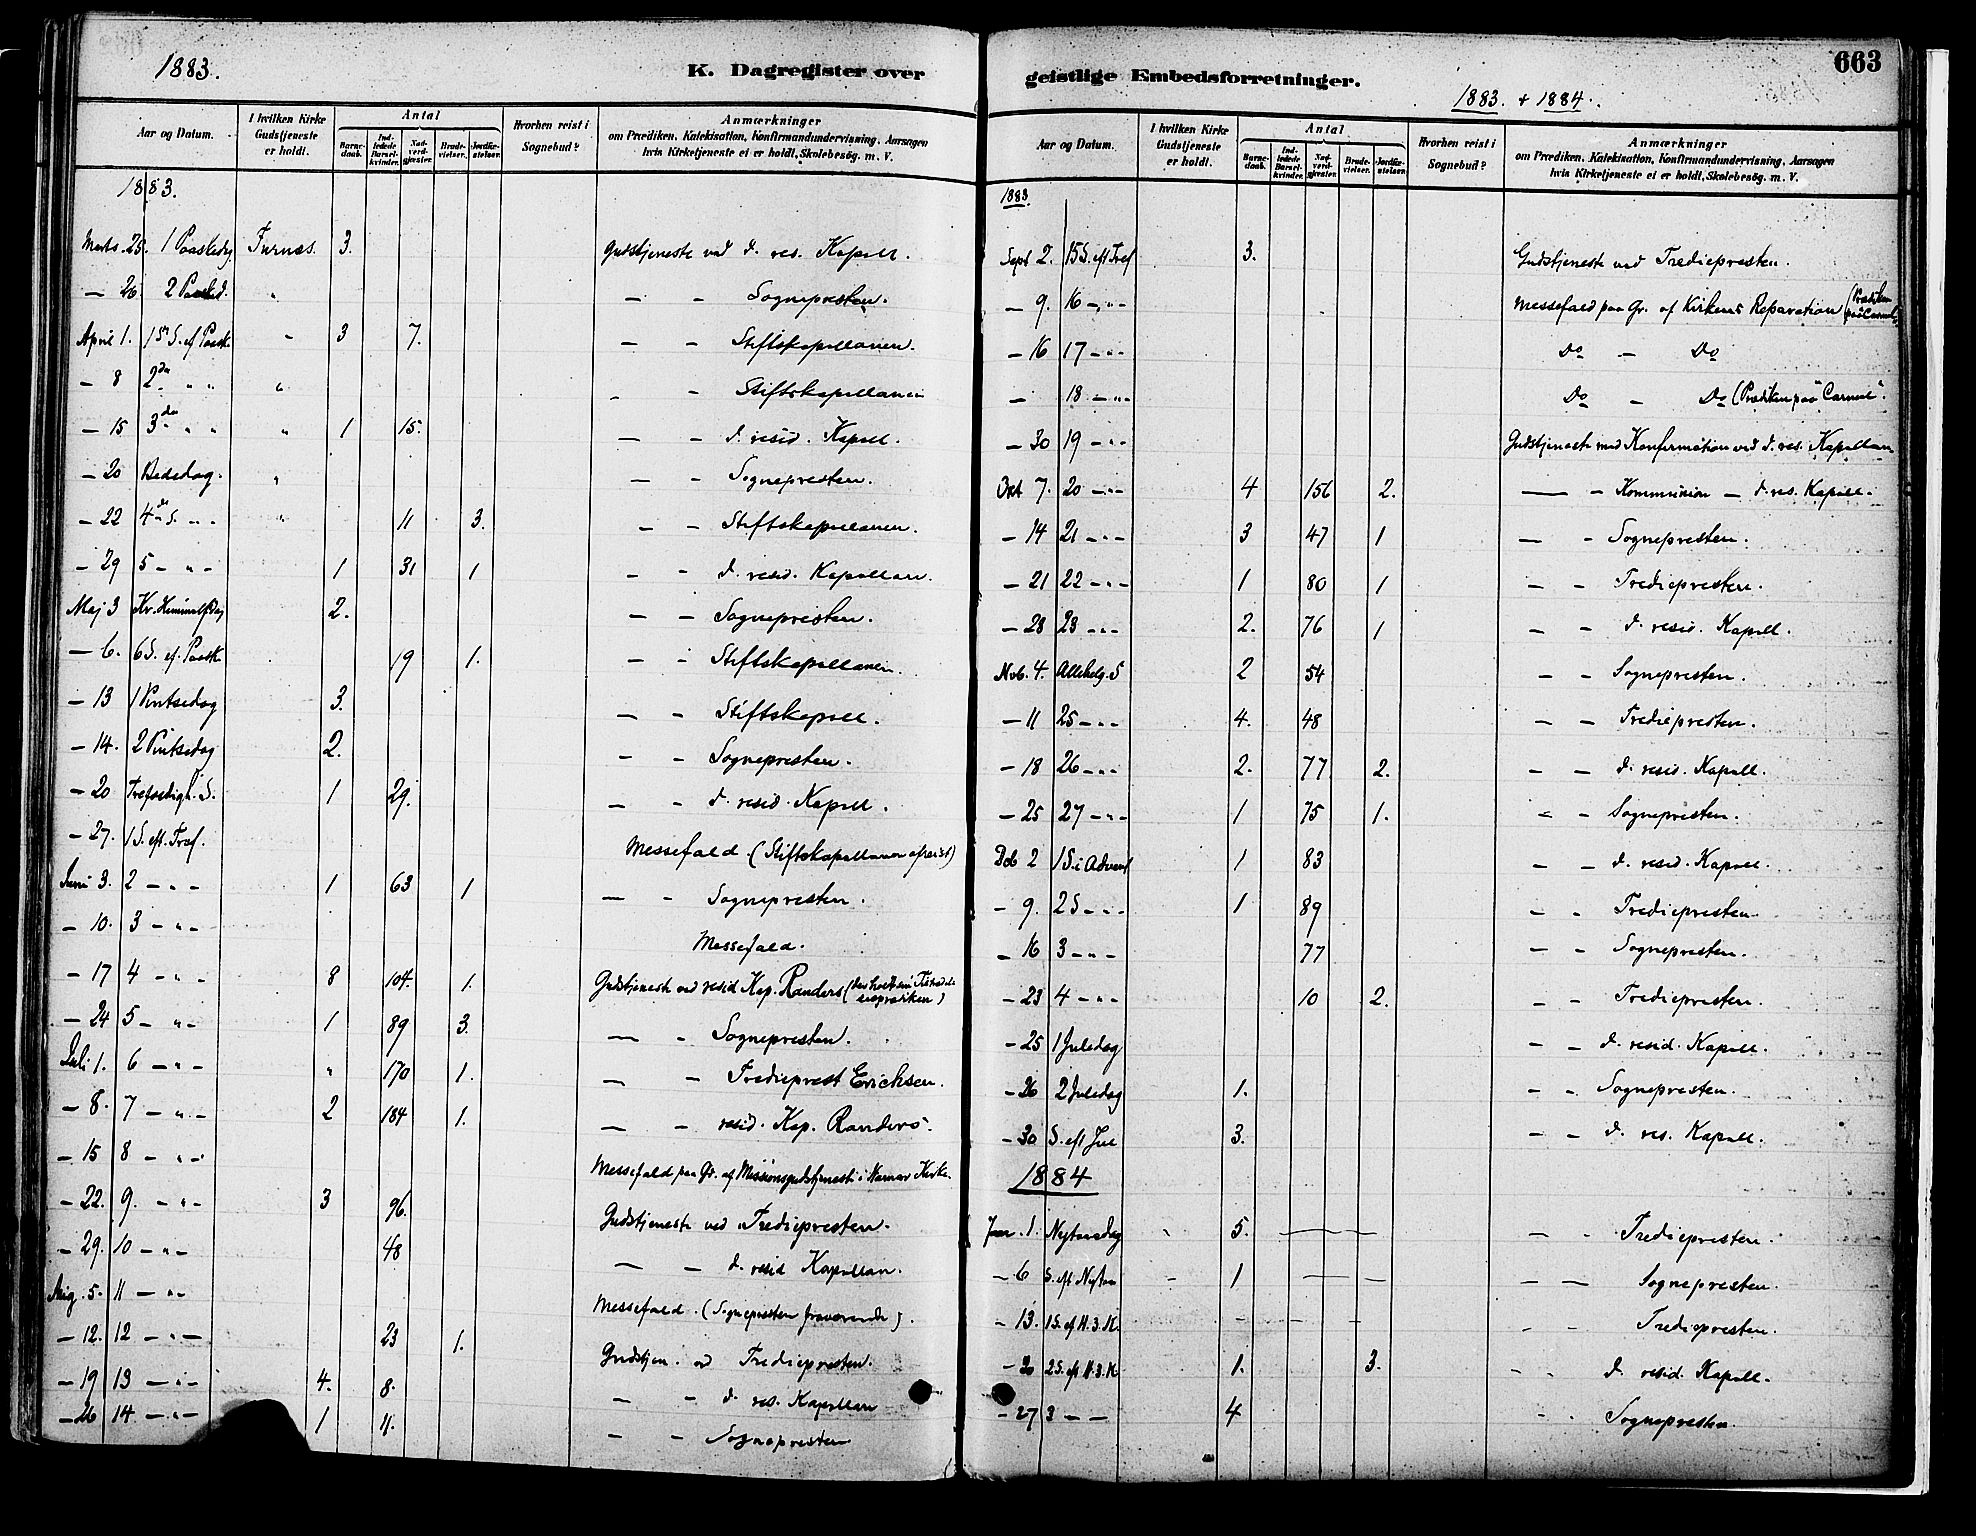 1883.
K. Dagregister over
Aar og Datum. I hvilken Kirke Gudstjeneste er holdt. Antal Barnedaab. Indledede Barselkvinder. Nadverdgjester. Brudevielser. Jordfæstelser. Hvorhen reist i Sognebud? Anmærkninger om Prædiken, Katekisation, Konfirmandundervisning, Aarsagen hvis Kirketjeneste ei er holdt, Skolebesög. m. V.
1883.
Marts. 25. 1 Paaskedg Furnes. 3. Gudstjeneste ved d. res. Kapell.
— 26. 2 Paasked. " — - Sognepresten.
April 1. 1ste S. ef Paask. " 3 7. — - Stiftskapellanen.
— 8 2den " " " - - Stiftskapellanen
— 15 3die " " " 1 15. — - d. resid. Kapell.
— 20 Bededag. " — - Sognepresten.
— 22 4de S. " - " 11 3. — - Stiftskapellanen.
— 29 5 - " - 1 31 1 - - d. resid. Kapellan.
Maj 3 Kr. Himmelfdag 2. — - Sognepresten.
— 6. 6 S. ef. Paask 19 1. — - Stiftskapellanen.
— 13 1 Pintsedag 3. — - Stiftskapell.
— 14. 2 Pintsedag 2. — - Sognepresten.
— 20 Trefoldigh. S. 1 29. — - d. resid. Kapell.
— 27. 1 S. eft. Tref. Messefald (Stiftskapellanen afreist)
Juni 3. 2 — " — 1 63 1 — - Sognepresten.
— 10. 3 — " — Messefald.
— 17 4 — " — 8 104. 1. Gudstjeneste ved resid Kap. Randers (der holdt sin Tiltrædelsesprædiken)
— 24 5 — " — 1 89 3. — - Sognepresten.
Juli 1. 6 — " — " 170 1. — - Tredieprest Erichsen.
— 8. 7 — " — 2 184 1. — - resid. Kap. Randers.
— 15 8 — " — Messefald paa Gr. af Missionsgudstjeneste i Hamar Kirke.
— 22. 9. — " — 3 96. Gudstjeneste ved Trediepresten.
— 29. 10 — " — 48 — - d. resid Kapellan.
Aug. 5. 11 — " — Messefald. (Sognepresten fraværende).
— 12. 12 — " — 23 1. Gudstjen. ved Trediepresten.
— 19 13 — " — 4. 8. — - d. res. Kapellan
— 26 14 — " — 1 11. — - Sognepresten
663
geistlige Embedsforretninger.
1883. + 1884.
Aar og Datum. I hvilken Kirke Gudstjeneste er holdt. Antal Barnedaab. Indledede Barselkvinder. Nadverdgjester. Brudevielser. Jordfæstelser. Hvorhen reist i Sognebud? Anmærkninger om Prædiken, Katekisation, Konfirmandundervisning, Aarsagen hvis Kirketjeneste ei er holdt, Skolebesög. m. V.
1883.
Sept 2. 15 S. eft Tref 3. Gudstjeneste ved Trediepresten.
— 9. 16 — " — Messefald paa Gr. af Kirkens Reparation (Prædiken paa Carmel)
— 16 17 — " — Do — Do
— 18 — " — Do — Do (Prædiken paa "Carmel".
— 30 19 — " — Gudstjeneste med Konfirmation ved d. res. Kapellan
Okt 7. 20 — " — 4 156 2. — - Kommunion — d. res. Kapell.
— 14 21 — " — 3 47 1 — - Sognepresten.
— 21 22 — " — 1 80 1 — - Trediepresten.
— 28 23 — " — 2. 76 1 — - d. resid. Kapell.
Nov. 4. Allehelg. S 2 54 — - Sognepresten.
— 11 25 — " — 4. 48 — - Trediepresten.
— 18 26 — " — 2. 77 2. — - d. resid. Kapell.
— 25 27 — " — 1 75 1. — - Sognepresten.
Deb 2 1 S. i Advent 1 83 — - d. resid. Kapell.
— 9. 2 S — " — 1 89 — - Trediepresten
— 16 3 — " — 77 — - Sognepresten.
— 23 4 — " — 10 2. — - Trediepresten.
— 25 1 Juledag — - d. resid. Kapell.
— 26 2 Juledag 1. — - Sognepresten.
— 30 S. eft Jul 3. — - d. res. Kapell.
1884
Jan. 1. Nytaarsdag " 5. — — - Trediepresten.
— 6 S. eft Nytaar - 1 — — — - Sognepresten.
— 13. 1 S. ef H. 3. K. - - - — - Trediepresten.
— 20 2 S. eft H. 3. K 1. 3. - - d. resid. Kapell.
— 27 3 — — 4 - - Sognepresten.